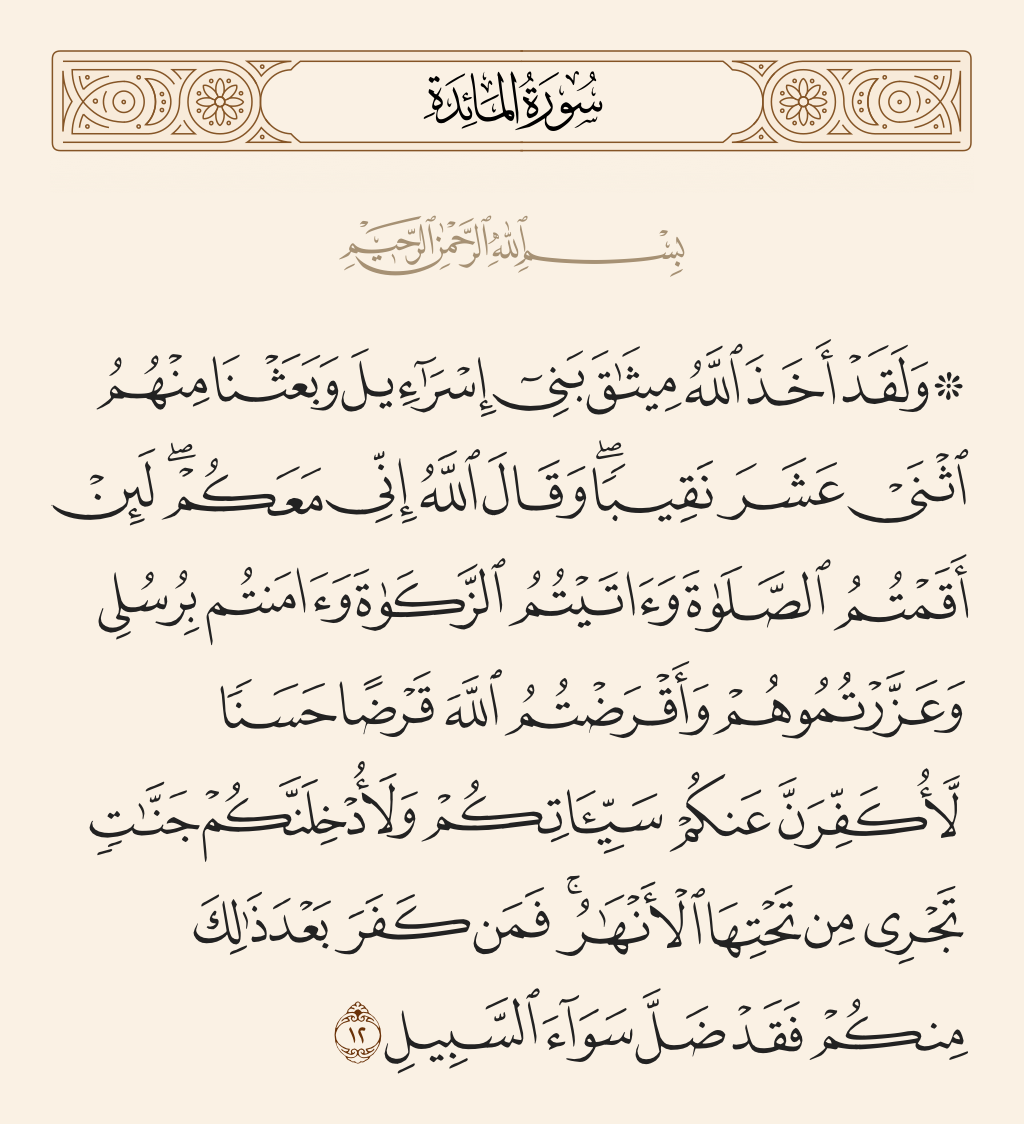 سُورَةُ المَائِدَةِ
بِسْمِ ٱللَّهِ ٱلرَّحْمَٰنِ ٱلرَّحِيمِ
۞ وَلَقَدْ أَخَذَ ٱللَّهُ مِيثَٰقَ بَنِىٓ إِسْرَٰٓءِيلَ وَبَعَثْنَا مِنْهُمُ
ٱثْنَىْ عَشَرَ نَقِيبًاۖ وَقَالَ ٱللَّهُ إِنِّى مَعَكُمْۖ لَئِنْ
أَقَمْتُمُ ٱلصَّلَوٰةَ وَءَاتَيْتُمُ ٱلزَّكَوٰةَ وَءَامَنتُم بِرُسُلِى
وَعَزَّرْتُمُوهُمْ وَأَقْرَضْتُمُ ٱللَّهَ قَرْضًا حَسَنًا
لَّأُكَفِّرَنَّ عَنكُمْ سَيِّـَٔاتِكُمْ وَلَأُدْخِلَنَّكُمْ جَنَّٰتٍ
تَجْرِى مِن تَحْتِهَا ٱلْأَنْهَٰرُۚ فَمَن كَفَرَ بَعْدَ ذَٰلِكَ
مِنكُمْ فَقَدْ ضَلَّ سَوَآءَ ٱلسَّبِيلِ ١٢